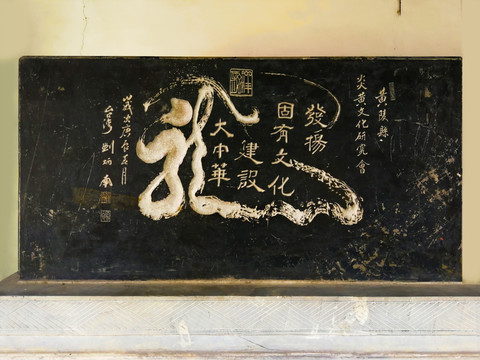 黄陵縣
炎黄文化研究會
發揚
固有文化
建設
大中華
龍
歲次庚辰 月
台湾 劉炳南